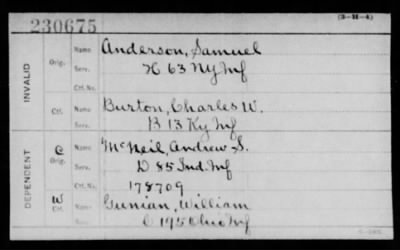 (3-H-4)
230675
INVALID
Orig.
Name Anderson, Samuel
Serv. H 63 NY Inf
Ctf. No.
Ctf.
Name Burton, Charles W.
Serv. B 13 Ky Inf
DEPENDENT
C
Orig.
Name McNeil, Andrew S.
Serv. D 85 Ind. Inf
Ctf. No. 178709
W
Ctf.
Name Gunian, William
C 195 Ohio Inf